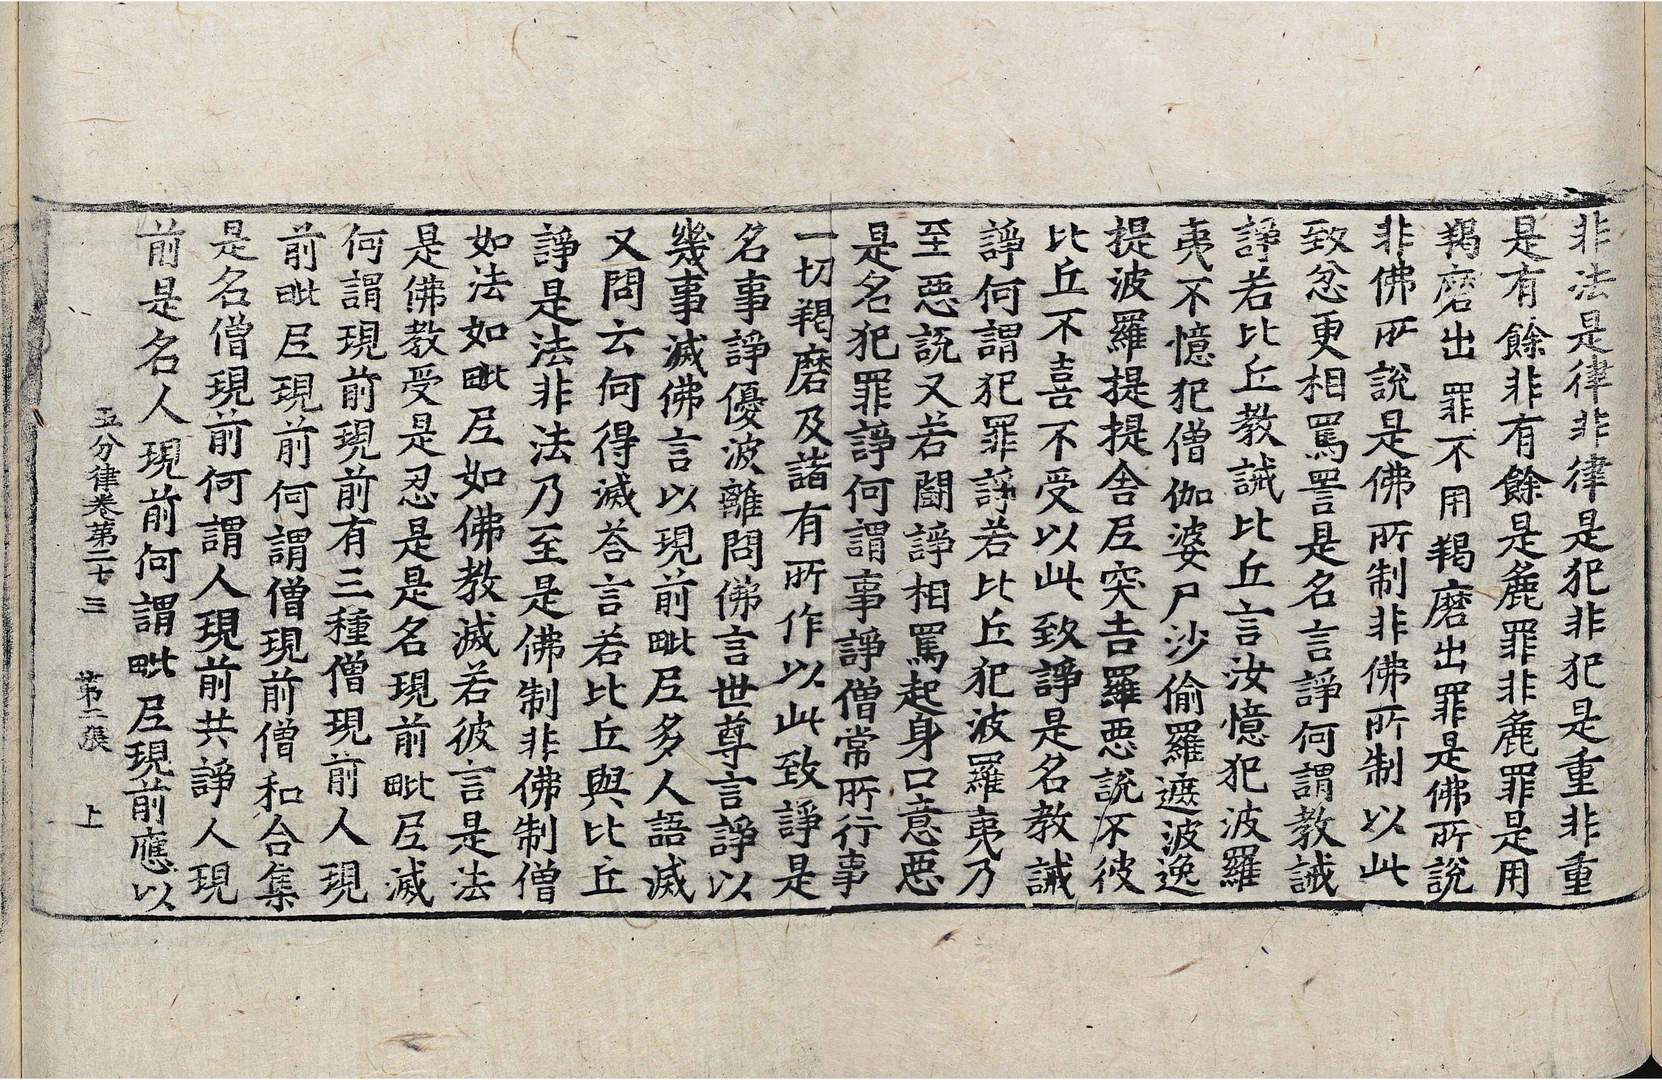 非法是律非律是犯非犯是重非重
是有餘非有餘是麁罪非麁罪是用
羯磨出罪不用羯磨出罪是佛所說
非佛所說是佛所制非佛所制以此
致忿更相罵詈是名言諍何謂教誡
諍若比丘教誡比丘言汝憶犯波羅
夷不憶犯僧伽婆尸沙偷羅遮波逸
提波羅提提舍𡰱突吉羅惡說不彼
比丘不喜不受以此致諍是名教誡
諍何謂犯罪諍若比丘犯波羅夷乃
至惡說又若鬪諍相罵起身口意惡
是名犯罪諍何謂事諍僧常所行事
一切羯磨及諸有所作以此致諍是
名事諍優波離問佛言世尊言諍以
幾事滅佛言以現前毗𡰱多人語滅
又問云何得滅荅言若比丘與比丘
諍是法非法乃至是佛制非佛制僧
如法如毗𡰱如佛教滅若彼言是法
是佛教受是忍是是名現前毗𡰱滅
何謂現前現前有三種僧現前人現
前毗𡰱現前何謂僧現前僧和合集
是名僧現前何謂人現前共諍人現
前是名人現前何謂毗𡰱現前應以
五分律卷第二十三　第二張　上